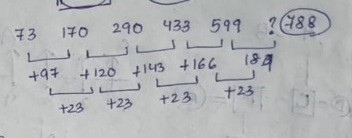 73 170 290 433 599 ? 788
+97 +120 +143 +166 189
+23 +23 +23 +23